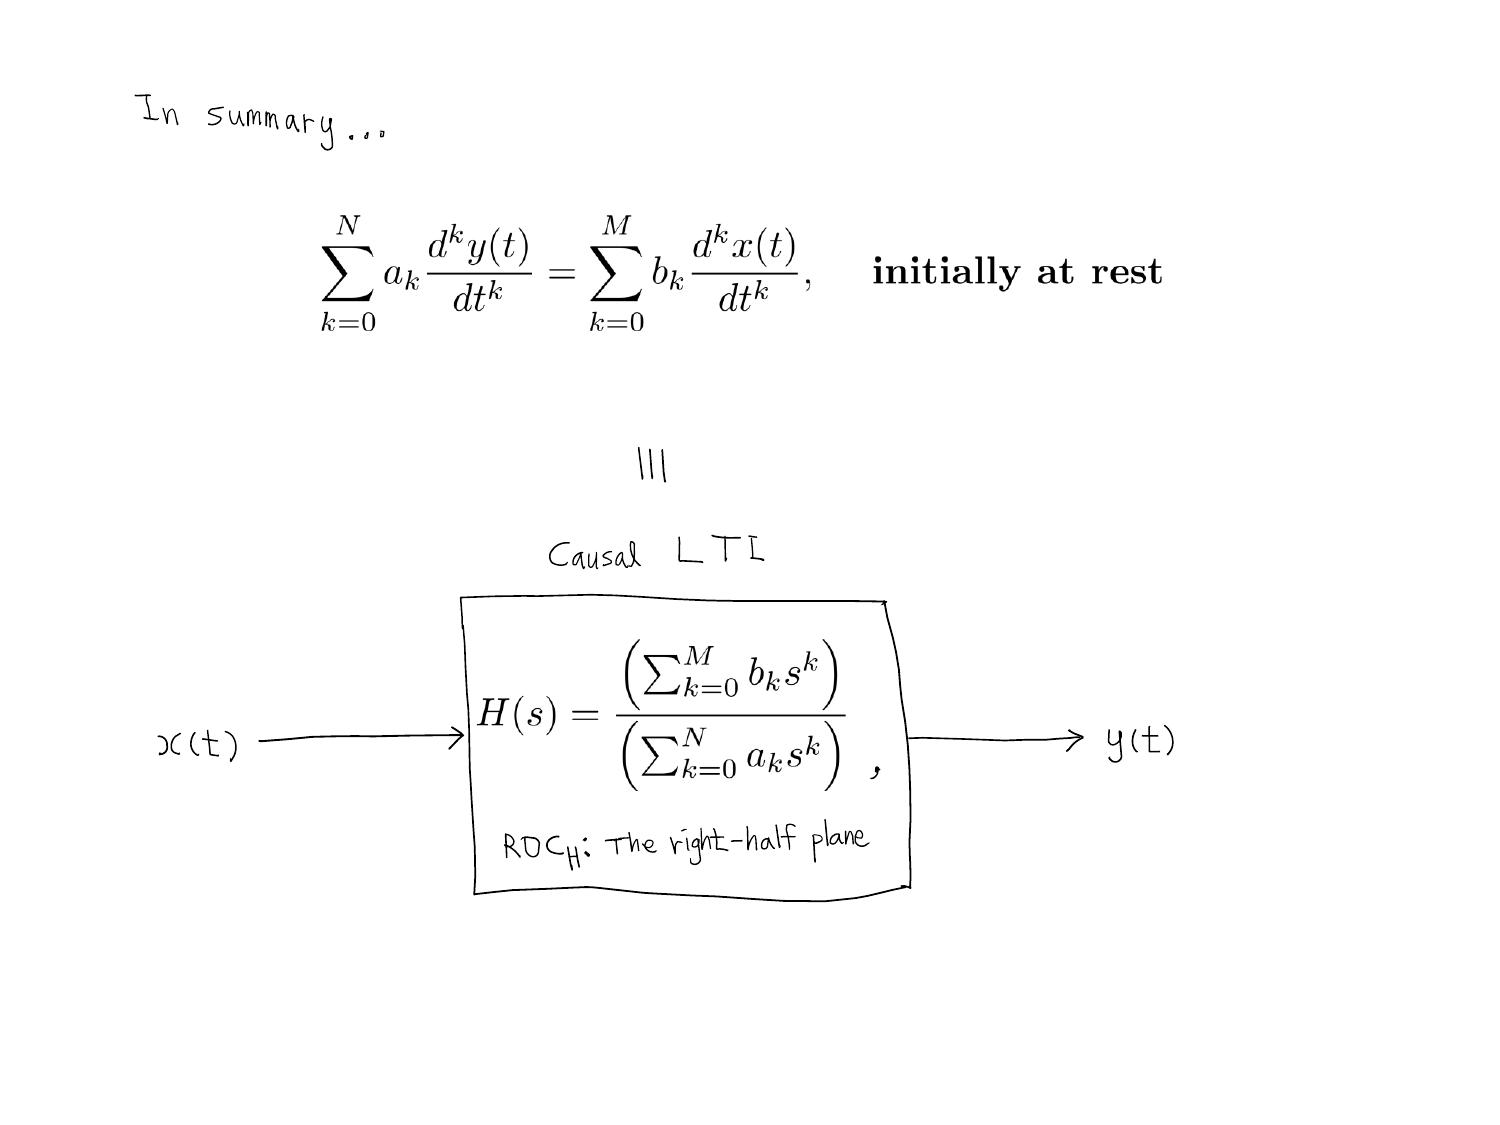 In summary...
\sum_{k=0}^{N} a_k \frac{d^k y(t)}{dt^k} = \sum_{k=0}^{M} b_k \frac{d^k x(t)}{dt^k}, initially at rest
|||
Causal LTI
H(s) = \frac{\left(\sum_{k=0}^{M} b_k s^k\right)}{\left(\sum_{k=0}^{N} a_k s^k\right)},
x(t) → → y(t)
ROC_H: The right-half plane